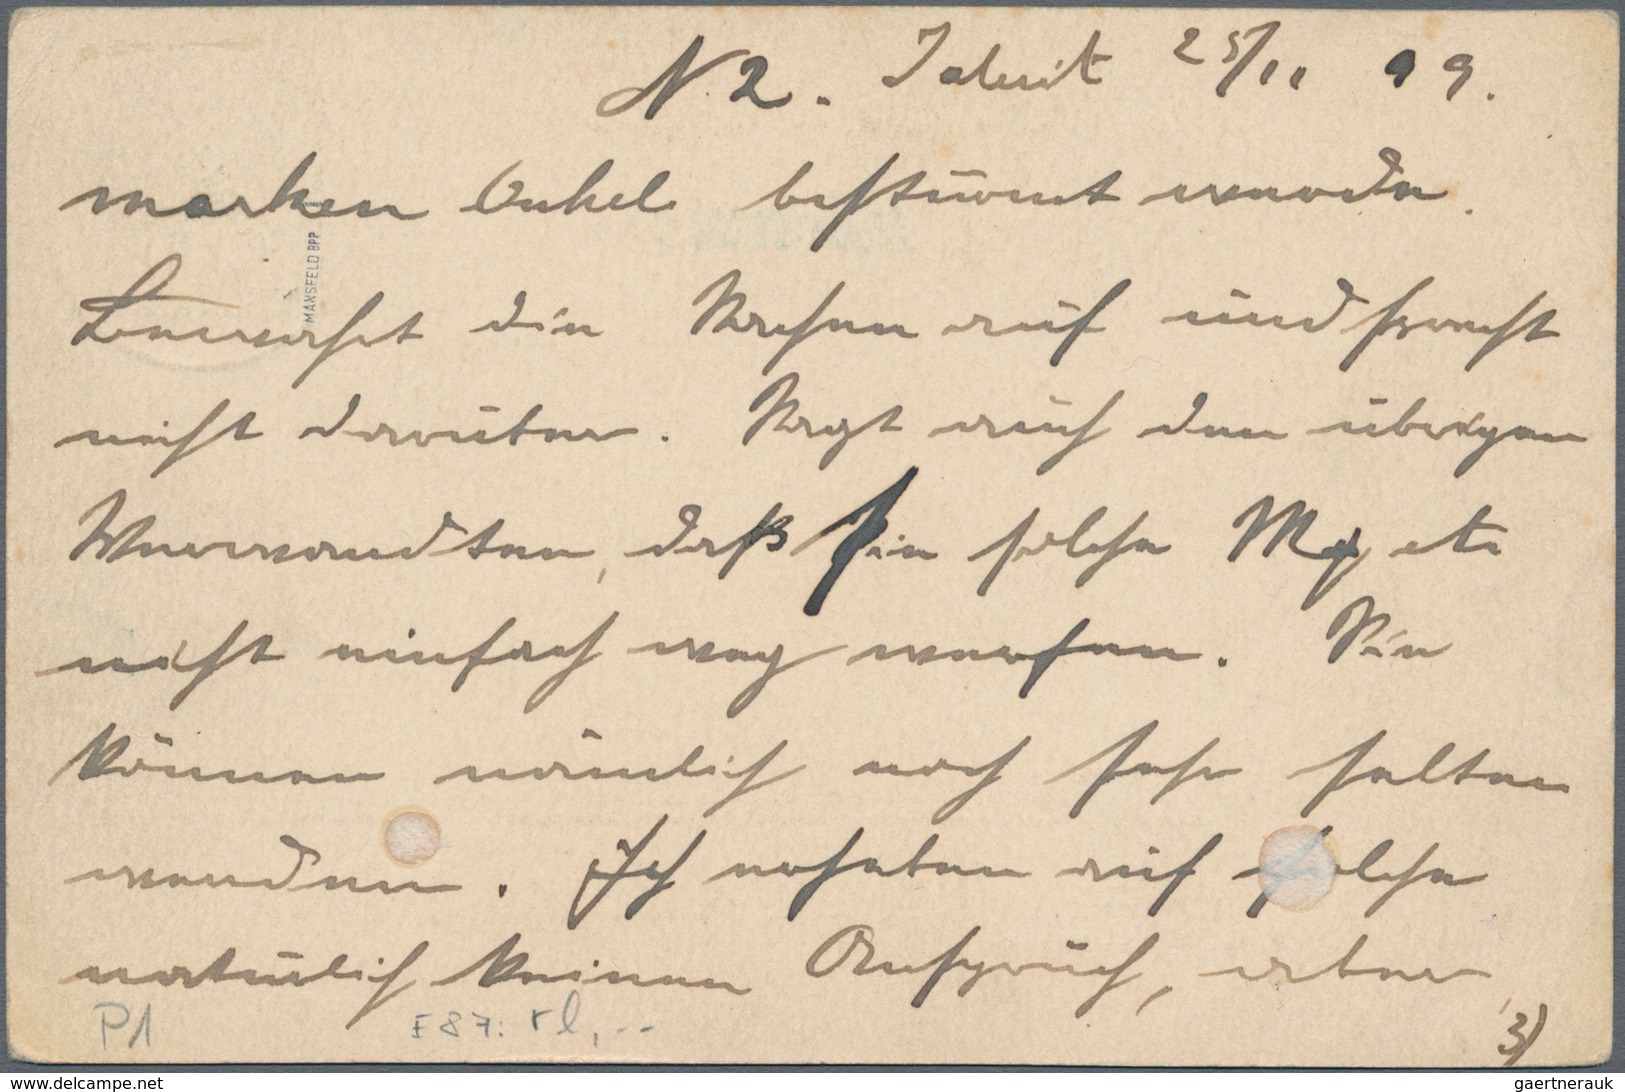 N. 2. Jaluit 25/11 99.
marken Onkel bestimmt werden.
MANSFELD BPP
Bewahrt die Sachen auf und sprecht
nicht darüber. Sagt auch den übrigen
Verwandten, daß sie solche
nicht einfach weg werfen. Sie
können nämlich noch sehr selten
werden. Ich erhebe auf solche
natürlich keinen Anspruch, aber
P1 E87: rl, ...
3)
www.delcampe.net gaertnerauk